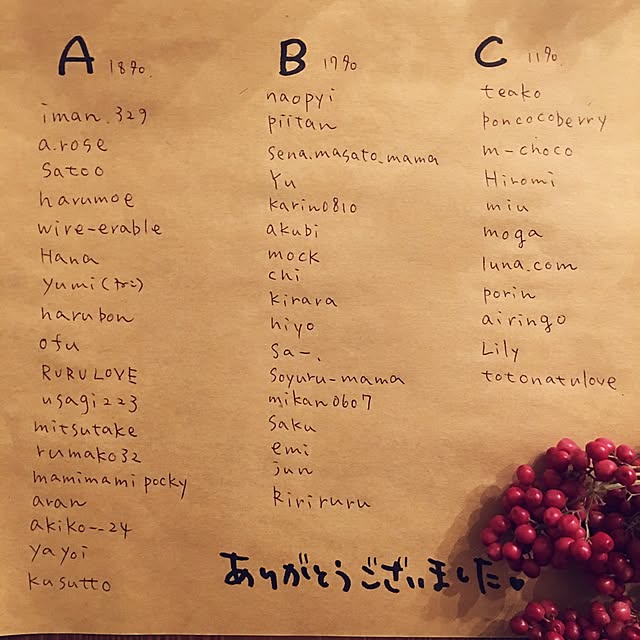 A 18名.
iman.329
a.rose
Satoo
harumoe
wire-erable
Hana
yumi(ネコ)
harubon
ofu
RURU LOVE
usagi223
mitsutake
rumako32
mamimami pocky
aran
akiko--24
yayoi
kusutto
B 17名
naopyi
piitan
sena.masato.mama
Yu
karin0810
akubi
mock
chi
kirara
hiyo
sa-.
soyuru-mama
mikan0607
saku
emi
jun
kiriruru
C 11名
teako
poncocoberry
m-choco
Hiromi
miu
moga
luna.com
porin
airingo
Lily
totonatulove
ありがとうございました